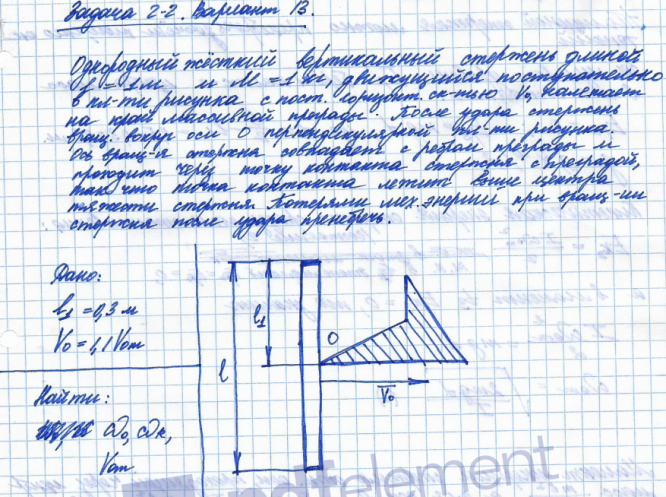 Задача 2-2. Вариант 13.
Однородный жёсткий вертикальный стержень длиной
l = 1м и M = 1 кг, движущийся поступательно
в пл-ти рисунка с пост. горизонт. ск-тью V₀, налетает
на край массивной преграды. После удара стержень
вращ. вокруг оси О перпендикулярной пл-ти рисунка.
Ось вращ-я стержня совпадает с ребром преграды и
проходит через точку контакта стержня с преградой,
так что точка контакта лежит выше центра
тяжести стержня. Потерями мех. энергии при вращ-ии
стержня после удара пренебречь.
Дано:
l₁ = 0,3 м
V₀ = 1,1 Vom
Найти:
ω₀, ωк,
Vom
l
l₁
O
V₀
pdfelement